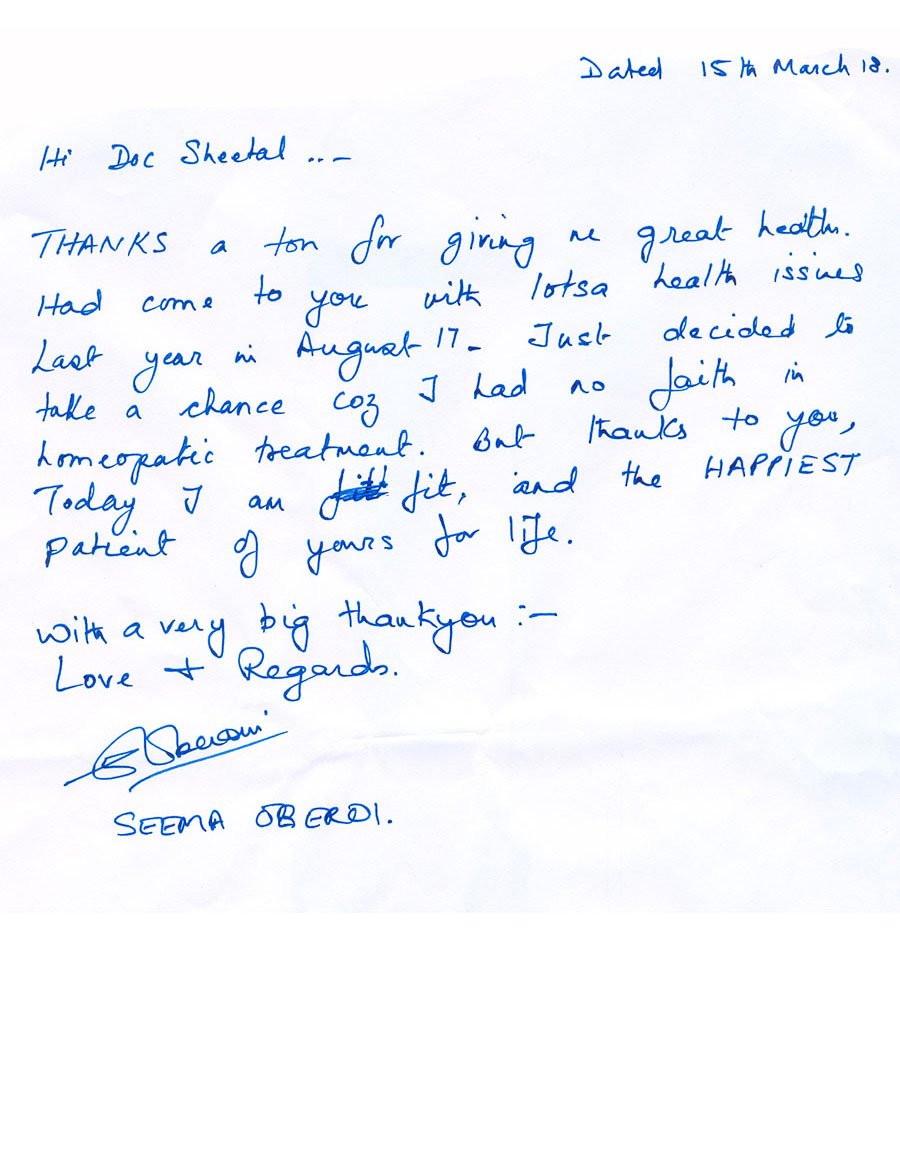 Dated 15th March 18.
Hi Doc Sheetal ..-
THANKS a ton for giving me great health.
Had come to you with lotsa health issues
Last year in August 17- Just decided to
take a chance coz I had no faith in
homeopatic treatment. But thanks to you,
Today I am fit, and the HAPPIEST
patient of yours for life.
With a very big thankyou :-
Love + Regards.
SOberoi
SEEMA OBEROI.